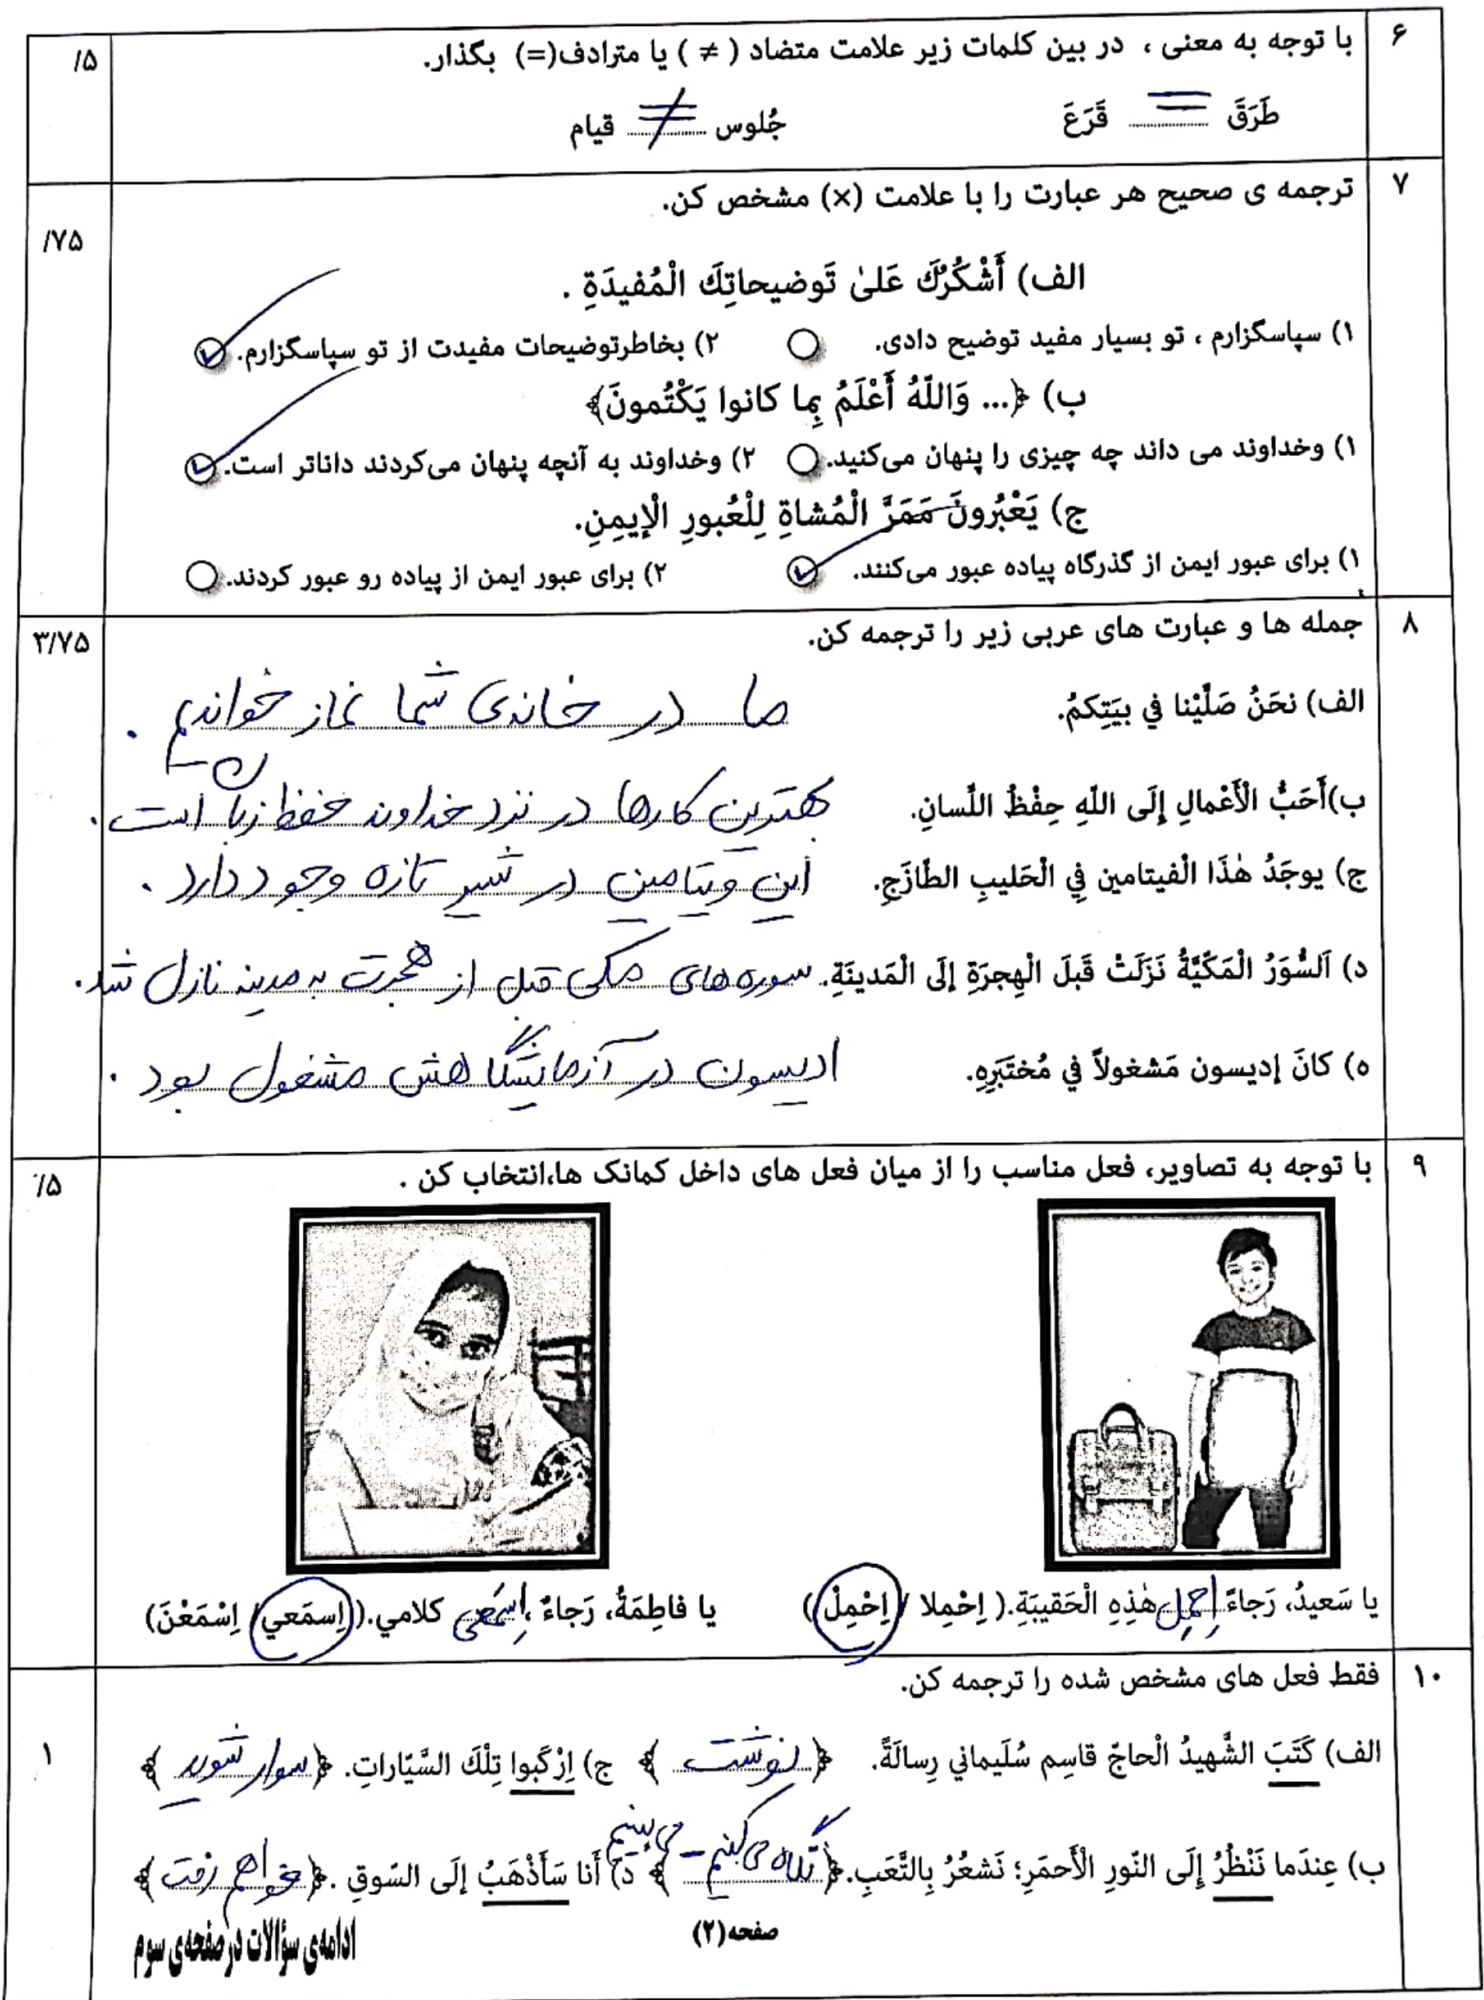 ۶
با توجه به معنی ، در بین کلمات زیر علامت متضاد ( ≠ ) یا مترادف(=) بگذار.
/۵
طَرَقَ = قَرَعَ
جُلوس ≠ قیام
۷
ترجمه ی صحیح هر عبارت را با علامت (×) مشخص کن.
/۷۵
الف) أَشْکُرُكَ عَلیٰ تَوضیحاتِكَ الْمُفیدَةِ .
۱) سپاسگزارم ، تو بسیار مفید توضیح دادی. ۲) بخاطرتوضیحات مفیدت از تو سپاسگزارم.
ب) ﴿... وَاللّٰهُ أَعْلَمُ بِما کانوا یَکْتُمونَ﴾
۱) وخداوند می داند چه چیزی را پنهان می‌کنید. ۲) وخداوند به آنچه پنهان می‌کردند داناتر است.
ج) یَعْبُرونَ مَمَرَّ الْمُشاةِ لِلْعُبورِ الْإیمِنِ.
۱) برای عبور ایمن از گذرگاه پیاده عبور می‌کنند. ۲) برای عبور ایمن از پیاده رو عبور کردند.
۸
جمله ها و عبارت های عربی زیر را ترجمه کن.
۳/۷۵
الف) نحَنُ صَلَّیْنا في بیَتِکمُ. ما در خانه‌ی شما نماز خواندیم .
ب)أَحَبُّ الْأَعْمالِ إِلَی اللّٰهِ حِفْظُ اللّسانِ. بهترین کارها در نزد خداوند حفظ زبان است .
ج) یوجَدُ هٰذَا الْفیتامین فِي الْحَلیبِ الطّازَجِ. این ویتامین در شیر تازه وجود دارد .
د) اَلسُّوَرُ الْمَکّیَّةُ نَزَلَتْ قَبلَ الْهِجرَةِ إلَی الْمَدینَةِ. سوره های مکی قبل از هجرت به مدینه نازل شد.
ه) کانَ إدیسون مَشغولاً في مُختَبَرِهِ. ادیسون در آزمایشگاهش مشغول بود .
۹
با توجه به تصاویر، فعل مناسب را از میان فعل های داخل کمانک ها،انتخاب کن .
/۵
یا سَعیدُ، رَجاءً اِحمِل هٰذِهِ الْحَقیبَةِ.( اِحْمِلا / اِحْمِلْ )
یا فاطِمَةُ، رَجاءً ، اِسمَعی کلامي.( اِسمَعي/ اِسْمَعْنَ)
۱۰
فقط فعل های مشخص شده را ترجمه کن.
۱
الف) کَتَبَ الشَّهیدُ الْحاجّ قاسِم سُلَیماني رِسالَةً. ﴿ نوشت ﴾ ج) اِرْکَبوا تِلْكَ السَّیّاراتِ. ﴿ سوار شوید ﴾
ب) عِندَما نَنْظُرُ إِلَی النّورِ الْأَحمَرِ؛ نَشعُرُ بِالتَّعَبِ.﴿ نگاه می‌کنیم – می‌بینیم ﴾ د) أَنا سَأَذْهَبُ إلَی السّوقِ .﴿ خواهم رفت ﴾
صفحه(۲)
ادامه‌ی سؤالات در صفحه‌ی سوم